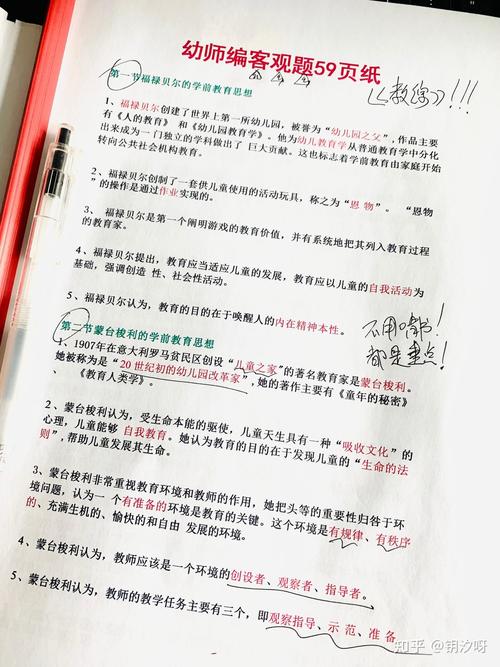 幼师编客观题59页纸
《教综》!!!
第一节福禄贝尔的学前教育思想
1、福禄贝尔创建了世界上第一所幼儿园，被誉为“幼儿园之父”，作品主要
有《人的教育》 和《幼儿园教育学》。他为幼儿教育学从普通教育学中分化
出来成为一门独立的学科做出了 巨大贡献。这也标志着学前教育由家庭开始
转向公共社会机构教育。
2、福禄贝尔创制了一套供儿童使用的活动玩具，称之为“恩 物”。 “恩物
”的操作是通过作业实现的。
3、 福禄贝尔是第一个阐明游戏的教育价值，并有系统地把其列入教育过程
的教育家。
4、福禄贝尔提出，教育应当适应儿童的发展，教育应以儿童的自我活动为
基础，强调创造 性、社会性活动。
5、福禄贝尔认为，教育的目的在于唤醒人的内在精神本性。
不用啃书!
都是重点!
第二节蒙台梭利的学前教育思想
1、1907年在意大利罗马贫民区创设“儿童之家”的著名教育家是蒙台梭利。
她被称为是“20 世纪初的幼儿园改革家”，她的著作主要有《童年的秘密》
、《教育人类学》。
2、蒙台梭利认为，受生命本能的驱使，儿童天生具有一种“吸收文化”的
心理，儿童能够 自我教育。她认为教育的目的在于发现儿童的“生命的法
则”，帮助儿童发展其生命。
3、蒙台梭利非常重视教育环境和教师的作用，她把头等的重要性归咎于环
境问题，认为一 个有准备的环境是教育的关键。这个环境是有规律、有秩序
的、充满生机的、愉快的和自由 发展的环境。
4、蒙台梭利认为，教师应该是一个环境的创设者、观察者、指导者。
5、蒙台梭利认为，教师的教学任务主要有三个，即观察指导、示 范、准 备
知乎 @钥汐呀